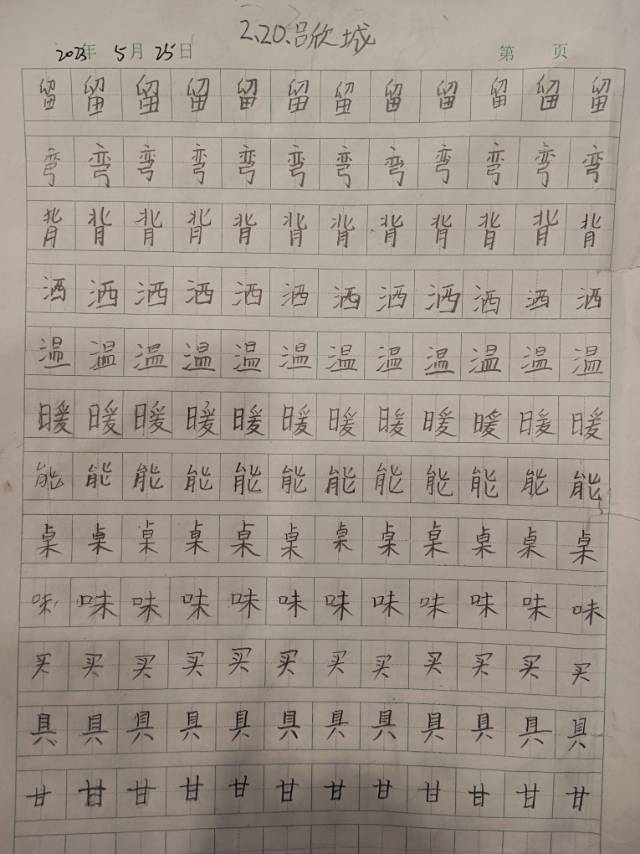 2.20.吕欣城
2023年 5月 25日 第 页
留留留留留留留留留留留留
弯弯弯弯弯弯弯弯弯弯弯弯
背背背背背背背背背背背背
洒洒洒洒洒洒洒洒洒洒洒洒
温温温温温温温温温温温温
暖暖暖暖暖暖暖暖暖暖暖暖
能能能能能能能能能能能能
桌桌桌桌桌桌桌桌桌桌桌桌
味味味味味味味味味味味味
买买买买买买买买买买买买
具具具具具具具具具具具具
甘甘甘甘甘甘甘甘甘甘甘甘